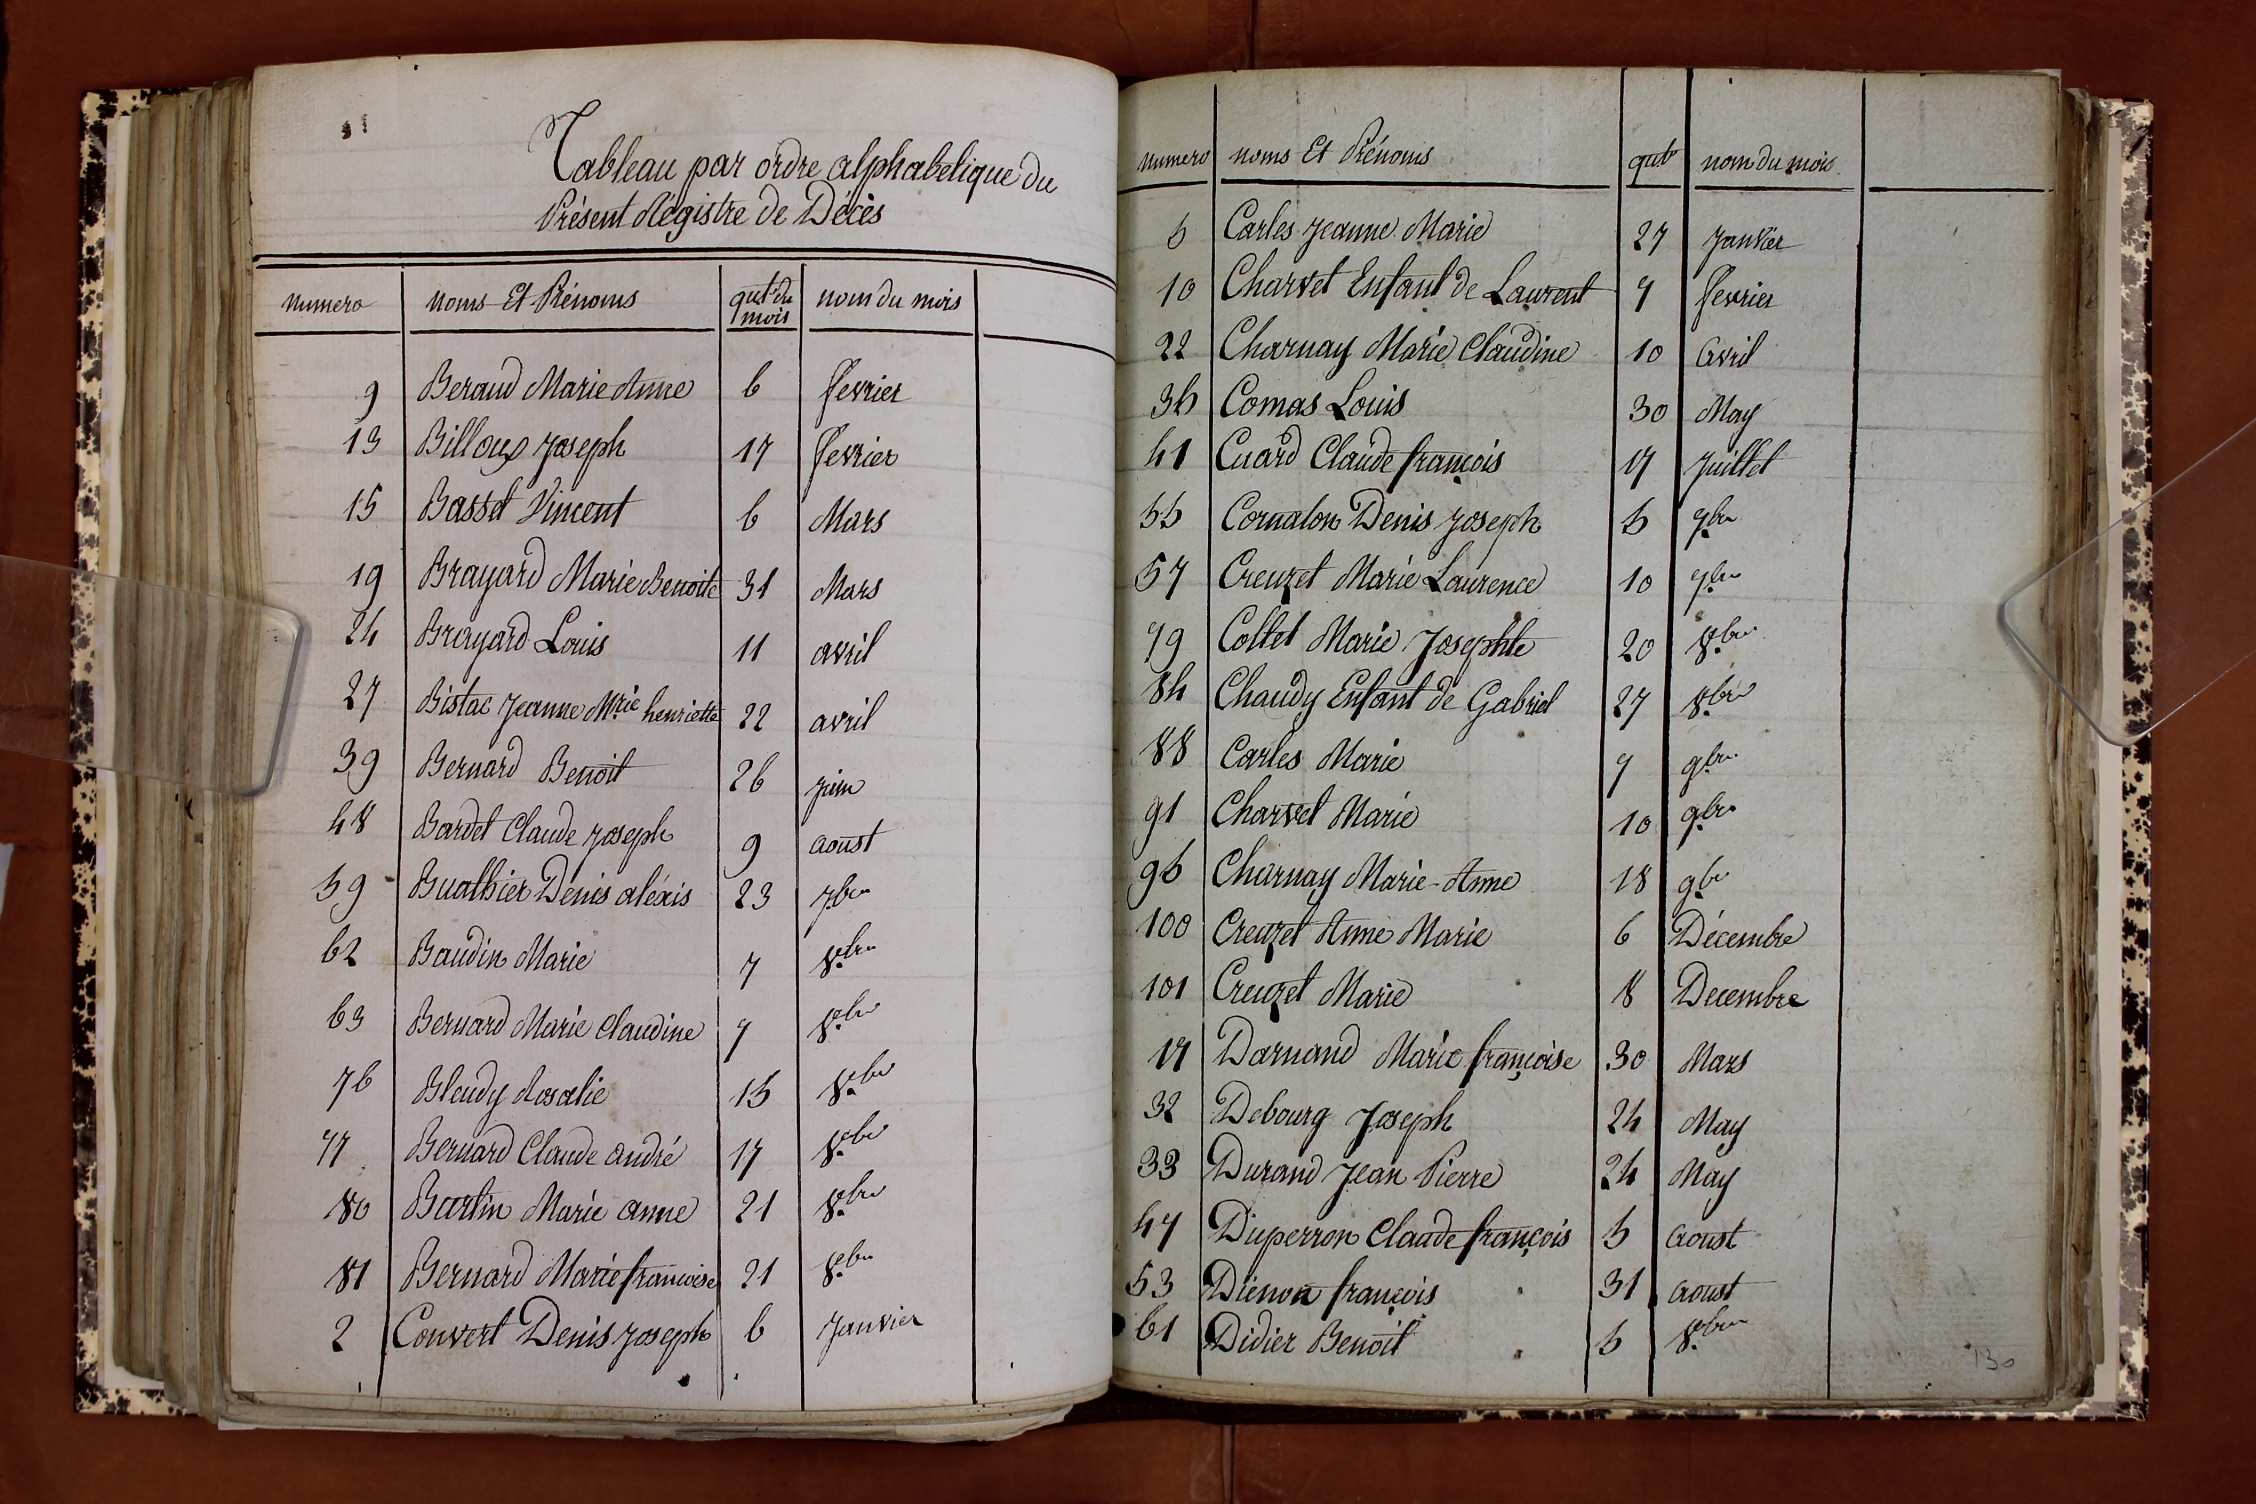 Tableau par ordre alphabetique du
Présent Régistre de Décès
numero noms Et Prénoms qut du mois nom du mois
9 Beraud Marie Anne 6 fevrier
13 Billoux Joseph 17 fevrier
15 Basset Vincent 6 Mars
19 Brayard Marie Benoite 31 Mars
24 Brayard Louis 11 avril
27 Bistac Jeanne Mrie henriette 22 avril
39 Bernard Benoit 26 juin
48 Bardet Claude joseph 9 aoust
59 Bualhier Denis aléxis 23 7bre
62 Baudin Marie 7 8bre
63 Bernard Marie Claudine 7 8bre
76 Bleudy Rosalie 15 8bre
77 Bernard Claude andré 17 8bre
80 Burtin Marie anne 21 8bre
81 Bernard Marie francoise 21 8bre
2 Convert Denis joseph 6 Janvier
numero noms Et Prénoms qut nom du mois
5 Carles Jeanne Marie 27 Janvier
10 Charvet Enfant de Laurent 7 fevrier
22 Charnay Marie Claudine 10 Avril
35 Comas Louis 30 May
41 Cuard Claude françois 17 Juillet
55 Cornalon Denis Joseph 5 7bre
57 Creuzet Marie Laurence 10 7bre
79 Collet Marie Josephte 20 8bre
84 Chaudy Enfant de Gabriel 27 8bre
88 Carles Marie 7 9bre
91 Charvet Marie 10 9bre
95 Charnay Marie-Anne 18 9bre
100 Creuzet Anne Marie 6 Décembre
101 Creuzet Marie 8 Decembre
17 Darnand Marie françoise 30 Mars
32 Debourg Joseph 24 May
33 Durand Jean Pierre 24 May
47 Duperron Claude françois 5 aoust
53 Dienon françois 31 aoust
61 Didier Benoit 5 8bre
130